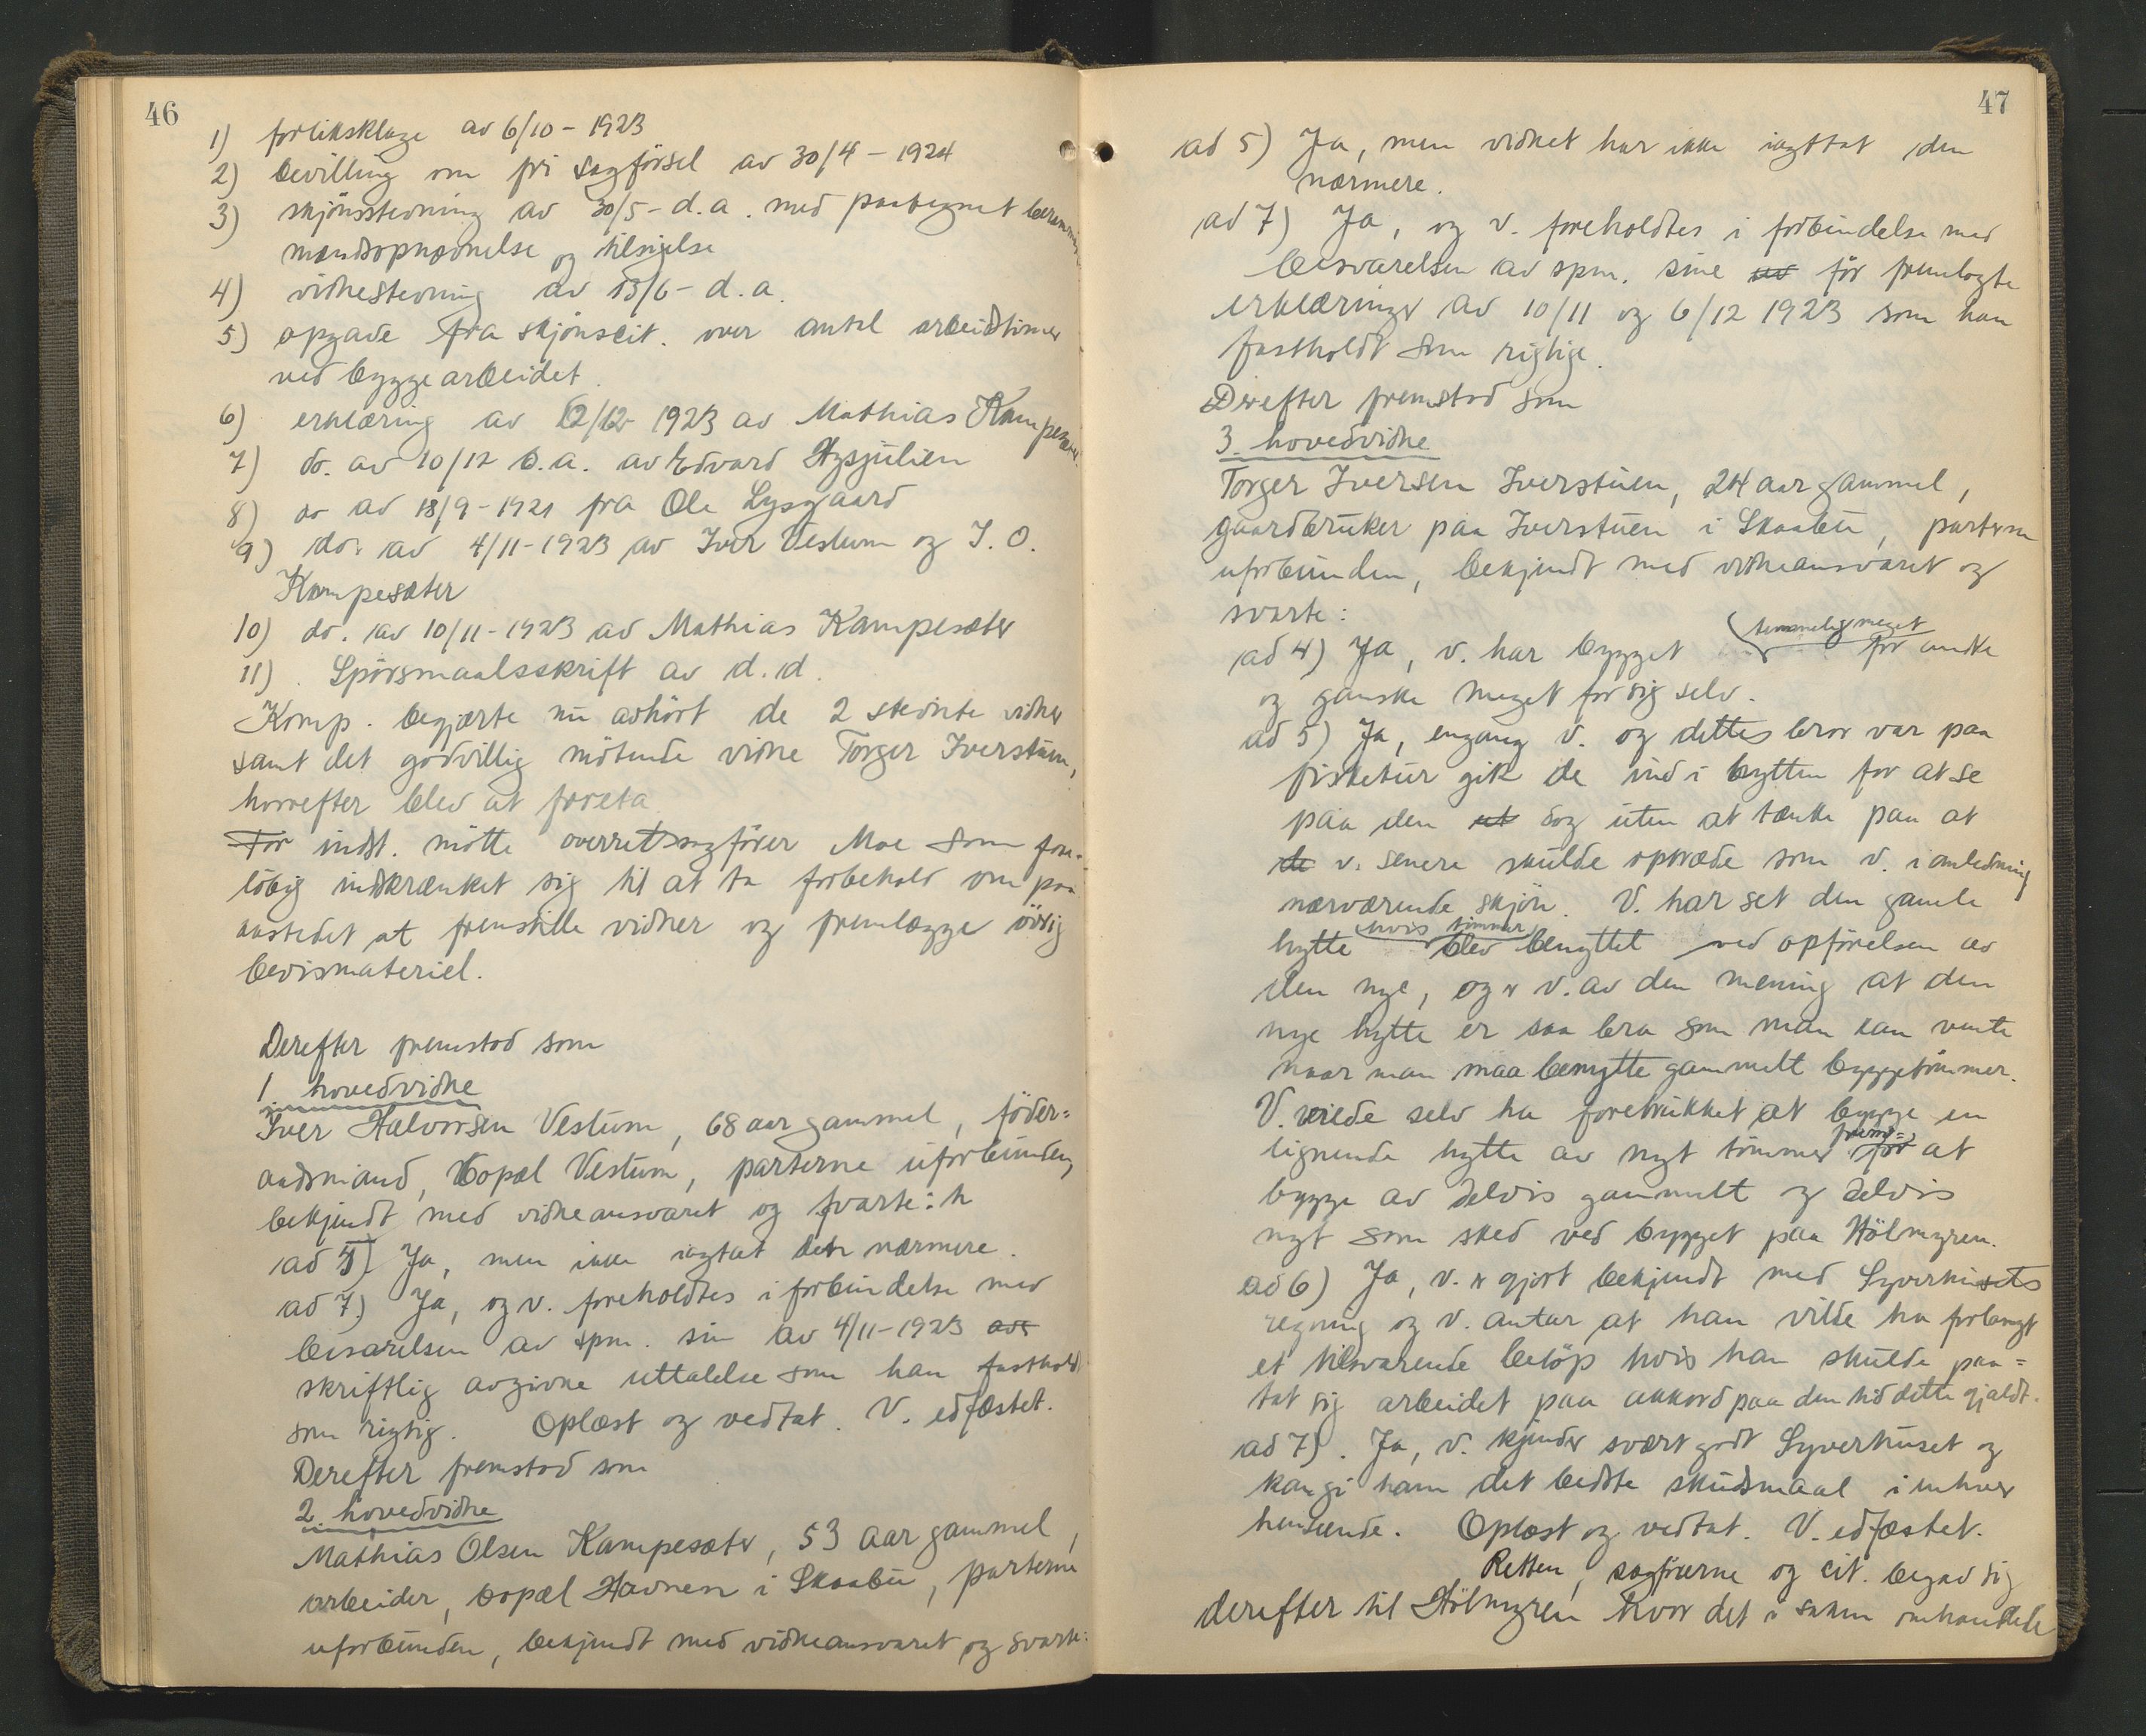 46
1) forliksklage av 6/10 - 1923
2) bevilling om fri sagförsel av 30/4 - 1924
3) skjönsstevning av 30/5 - d.a. med paategnet
mandsopnævnelse og tilsigelse
4) vidnestevning av 13/6 - d.a.
5) opgave fra skjönscit. over antal arbeidstimer
ved byggearbeidet.
6) erklæring av 12/12 1923 av Mathias Kampesæter
7) do. av 10/12 s.a. av Edvard
8) do av 18/9 - 1921 fra Ole Lysgaard
9) do. av 4/11 - 1923 av Iver Vestum og I. O.
Kampesæter
10) do. av 10/11 - 1923 av Mathias Kampesæter
11) Spörsmaalsskrift av d.d.
Komp. begjærte nu avhört de 2 stevnte vidner
samt det godvillig mötende vidne Torger Iverstuen,
hvorefter blev at foreta
For indst. mötte overretssagförer Moe som fore-
löbig indskrænket sig til at ta forbehold om paa
aastedet at fremstille vidner og fremlægge övrig
bevismateriel.
Derefter fremstod som
1 hovedvidne
Iver Halvorsen Vestum, 68 aar gammel, föder=
aadsmand, bopæl Vestum, parterne uforbunden,
bekjendt med vidneansvaret og svarte: h
ad 5) Ja, men ikke iagtat den nærmere.
ad 7.) Ja, og v. foreholdtes i forbindelse med
besvarelsen av spm. sin av 4/11 - 1923 avs
skriftlig avgivne uttalelse som han fastholdt
som rigtig. Oplæst og vedtat. V. edfæstet.
Derefter fremstod som
2. hovedvidne
Mathias Olsen Kampesæter, 53 aar gammel,
arbeider, bopæl Havnen i Skaabu, parterne
uforbunden, bekjendt med vidneansvaret og svarte:
47
ad 5) Ja, men vidnet har ikke iagttat den
nærmere.
ad 7) Ja, og v. foreholdtes i forbindelse med
besvarelsen av spm. sine av för fremlagte
erklæringer av 10/11 og 6/12 1923 som han
fastholdt som rigtige.
Derefter fremstod som
3. hovedvidne
Torger Iversen Iverstuen, 24 aar gammel,
gaardbruker paa Iverstuen i Skaabu, parterne
uforbunden, bekjendt med vidneansvaret og
svarte:
ad 4) Ja, v. har bygget temmelig meget for andre
og ganske meget for sig selv.
ad 5) Ja, engang v. og dettes bror var paa
fisketur gik de ind i hytten for at se
paa den ut dog uten at tænke paa at
de v. senere skulde optræde som v. i anledning
nærværende skjön. V. har set den gamle
hytte hvis tömmer blev benyttet ved opförelsen av
den nye, og er v. av den mening at den
nye hytte er saa bra som man kan vente
naar man maa benytte gammelt byggetömmer.
V. vilde selv ha foretrukket at bygge en
lignende hytte av nyt tömmer frem= for at
bygge av delvis gammelt og delvis
nyt som sked ved bygget paa Hölmyren.
ad 6) Ja, v. er gjort bekjendt med Syverhusets
regning og v. antar at han vilde ha forlangt
et tilsvarende belöp hvis han skulde paa=
tat sig arbeidet paa akkord paa den tid dette gjaldt.
ad 7). Ja, v. kjender svært godt Syverhuset og
kan gi ham det bedste skudsmaal i enhver
henseende. Oplæst og vedtat. V. edfæstet.
Retten, sagförerne og cit. begav sig
derefter til Hölmyren hvor det i saken omhandlede